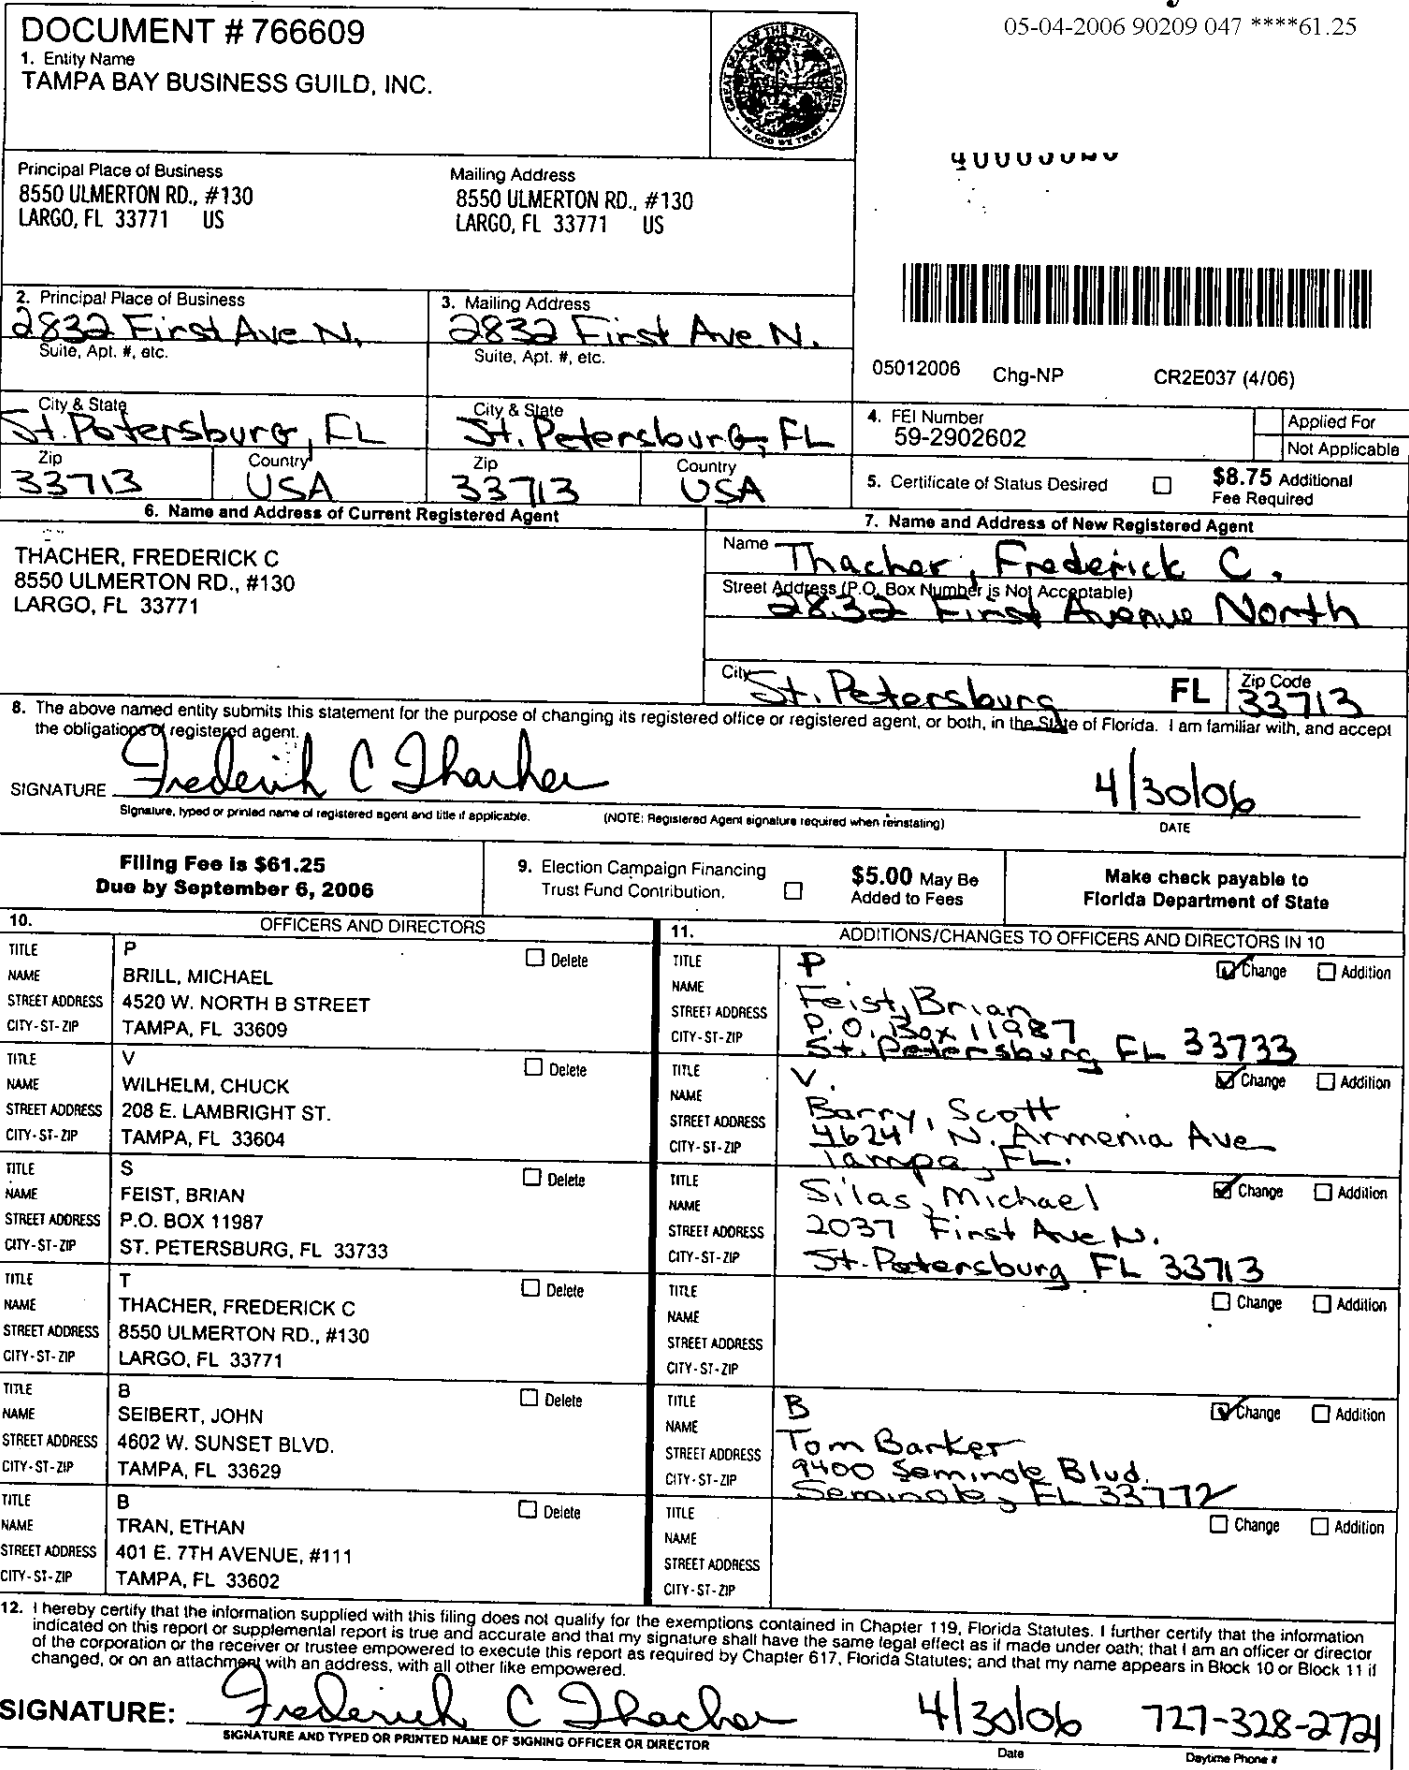 05-04-2006 90209 047 ****61.25
DOCUMENT # 766609
1. Entity Name
TAMPA BAY BUSINESS GUILD, INC.
GREAT SEAL OF THE STATE OF FLORIDA
IN GOD WE TRUST
Principal Place of Business
8550 ULMERTON RD., #130
LARGO, FL 33771 US
Mailing Address
8550 ULMERTON RD., #130
LARGO, FL 33771 US
2. Principal Place of Business
2832 First Ave N.
Suite, Apt. #, etc.
City & State
St. Petersburg, FL
Zip Country
33713 USA
3. Mailing Address
2832 First Ave N.
Suite, Apt. #, etc.
City & State
St. Petersburg, FL
Zip Country
33713 USA
05012006 Chg-NP CR2E037 (4/06)
4. FEI Number
59-2902602
Applied For
Not Applicable
5. Certificate of Status Desired
$8.75 Additional
Fee Required
6. Name and Address of Current Registered Agent
THACHER, FREDERICK C
8550 ULMERTON RD., #130
LARGO, FL 33771
7. Name and Address of New Registered Agent
Name Thacher, Frederick C.
Street Address (P.O. Box Number is Not Acceptable)
2832 First Avenue North
City St. Petersburg FL Zip Code 33713
8. The above named entity submits this statement for the purpose of changing its registered office or registered agent, or both, in the State of Florida. I am familiar with, and accept
the obligations of registered agent.
SIGNATURE Frederick C Thacher 4/30/06
Signature, typed or printed name of registered agent and title if applicable. (NOTE: Registered Agent signature required when reinstating) DATE
Filing Fee is $61.25
Due by September 6, 2006
9. Election Campaign Financing
Trust Fund Contribution.
$5.00 May Be
Added to Fees
Make check payable to
Florida Department of State
10. OFFICERS AND DIRECTORS
TITLE P Delete
NAME BRILL, MICHAEL
STREET ADDRESS 4520 W. NORTH B STREET
CITY-ST-ZIP TAMPA, FL 33609
TITLE V Delete
NAME WILHELM, CHUCK
STREET ADDRESS 208 E. LAMBRIGHT ST.
CITY-ST-ZIP TAMPA, FL 33604
TITLE S Delete
NAME FEIST, BRIAN
STREET ADDRESS P.O. BOX 11987
CITY-ST-ZIP ST. PETERSBURG, FL 33733
TITLE T Delete
NAME THACHER, FREDERICK C
STREET ADDRESS 8550 ULMERTON RD., #130
CITY-ST-ZIP LARGO, FL 33771
TITLE B Delete
NAME SEIBERT, JOHN
STREET ADDRESS 4602 W. SUNSET BLVD.
CITY-ST-ZIP TAMPA, FL 33629
TITLE B Delete
NAME TRAN, ETHAN
STREET ADDRESS 401 E. 7TH AVENUE, #111
CITY-ST-ZIP TAMPA, FL 33602
11. ADDITIONS/CHANGES TO OFFICERS AND DIRECTORS IN 10
TITLE P Change Addition
NAME Feist, Brian
STREET ADDRESS P.O. Box 11987
CITY-ST-ZIP St. Petersburg FL 33733
TITLE V. Change Addition
NAME Barry, Scott
STREET ADDRESS 4624 N. Armenia Ave
CITY-ST-ZIP Tampa, FL.
TITLE Silas, Michael Change Addition
NAME
STREET ADDRESS 2037 First Ave N.
CITY-ST-ZIP St. Petersburg FL 33713
TITLE Change Addition
NAME
STREET ADDRESS
CITY-ST-ZIP
TITLE B Change Addition
NAME Tom Barker
STREET ADDRESS 9400 Seminole Blvd.
CITY-ST-ZIP Seminole, FL 33772
TITLE Change Addition
NAME
STREET ADDRESS
CITY-ST-ZIP
12. I hereby certify that the information supplied with this filing does not qualify for the exemptions contained in Chapter 119, Florida Statutes. I further certify that the information
indicated on this report or supplemental report is true and accurate and that my signature shall have the same legal effect as if made under oath; that I am an officer or director
of the corporation or the receiver or trustee empowered to execute this report as required by Chapter 617, Florida Statutes; and that my name appears in Block 10 or Block 11 if
changed, or on an attachment with an address, with all other like empowered.
SIGNATURE: Frederick C Thacher 4/30/06 727-328-2721
SIGNATURE AND TYPED OR PRINTED NAME OF SIGNING OFFICER OR DIRECTOR Date Daytime Phone #